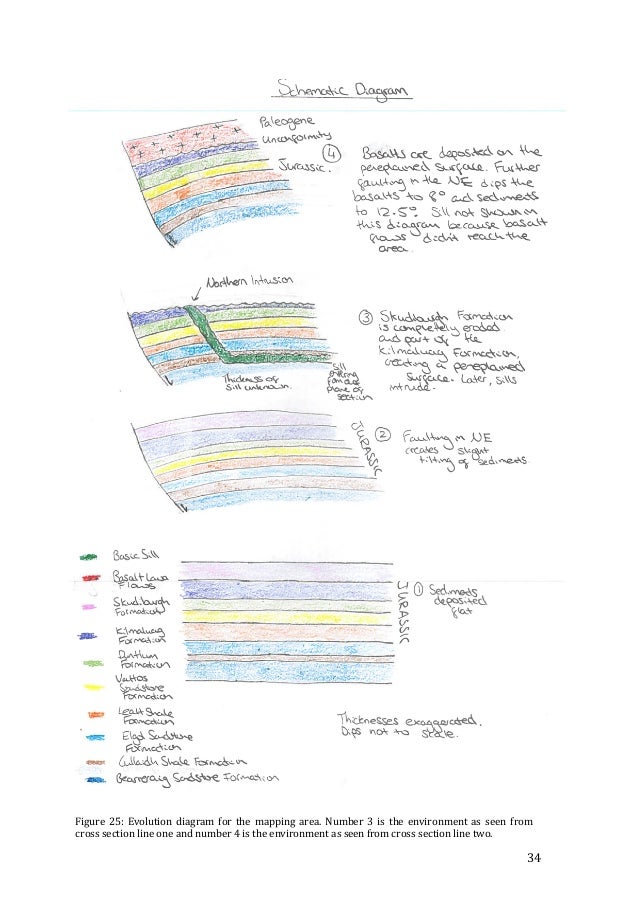 Schematic Diagram
Paleogene
Unconformity
Jurassic.
④ Basalts are deposited on the
peneplained surface. Further
faulting in the NE dips the
basalts to 8° and sediments
to 12.5°. Sill not shown in
this diagram because basalt
flows didn't reach the
area.
Northern Intrusion
③ Skudiburgh Formation
is completely eroded
and part of the
Kilmaluag Formation,
creating a peneplained
surface. Later, sills
intrude.
Thickness of
Sill unknown.
Sill
entering
from out
plane of
section
JURASSIC
② Faulting in NE
creates slight
tilting of sediments
Basic Sill
Basalt Lava
Flows
Skudiburgh
Formation
Kilmaluag
Formation
Duntulm
Formation
Valtos
Sandstone
Formation
Lealt Shale
Formation
Elgol Sandstone
Formation
Cullaidh Shale Formation
Bearreraig Sandstone Formation
JURASSIC
① Sediments
deposited
flat
Thicknesses exaggerated.
Dips not to scale.
Figure 25: Evolution diagram for the mapping area. Number 3 is the environment as seen from
cross section line one and number 4 is the environment as seen from cross section line two.
34